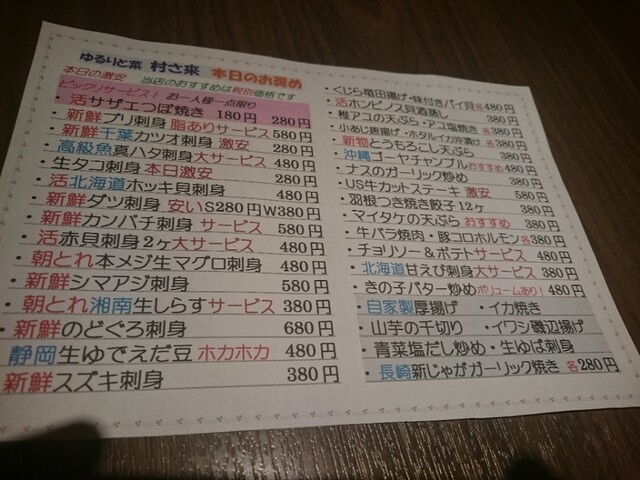 ゆるりと菜 村さ来 本日のお奨め
本日の激安 当店のおすすめは税別価格です
ビックリサービス! お一人様一点限り
・活サザエつぼ焼き 180円 280円
・新鮮ブリ刺身 脂ありサービス 580円
・新鮮千葉カツオ刺身 激安 280円
・高級魚真ハタ刺身大サービス 480円
・生タコ刺身 本日激安 280円
・活北海道ホッキ貝刺身 480円
・新鮮ダツ刺身 安いS280円W380円
・新鮮カンパチ刺身 サービス 580円
・活赤貝刺身2ヶ大サービス 480円
・朝とれ本メジ生マグロ刺身 480円
・新鮮シマアジ刺身 580円
・朝とれ湘南生しらすサービス 380円
・新鮮のどぐろ刺身 680円
静岡生ゆでえだ豆 ホカホカ 480円
新鮮スズキ刺身 380円
・くじら竜田揚げ・味付きバイ貝各480円
・活ホンビノス貝酒蒸し 380円
・稚アユの天ぷら・アユ塩焼き各480円
・小あじ唐揚げ・ホタルイカ沖漬け各380円
・新物とうもろこし天ぷら 380円
・沖縄ゴーヤチャンプルおすすめ480円
・ナスのガーリック炒め 380円
・US牛カットステーキ 激安 580円
・羽根つき焼き餃子12ヶ 380円
・マイタケの天ぷら おすすめ 380円
・牛バラ焼肉・豚コロホルモン各380円
・チョリソー&ポテトサービス 480円
・北海道甘えび刺身大サービス 380円
・きの子バター炒めボリュームあり! 480円
・自家製厚揚げ ・イカ焼き
・山芋の千切り ・イワシ磯辺揚げ
・青菜塩だし炒め・生ゆば刺身
・長崎新じゃがガーリック焼き 各280円